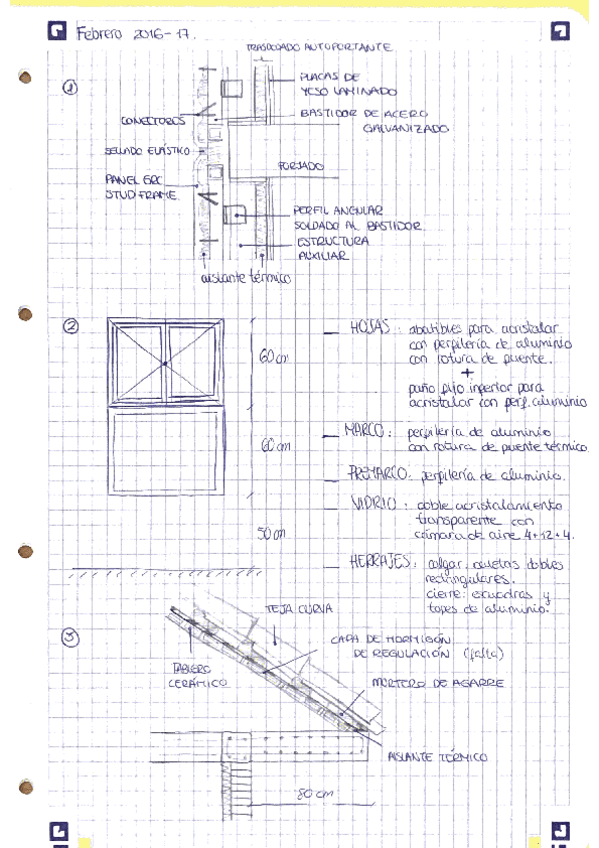 Febrero 2016-17.
TRASDOSADO AUTOPORTANTE
1
PLACAS DE
YESO LAMINADO
CONECTORES
BASTIDOR DE ACERO
GALVANIZADO
SELLADO ELÁSTICO
FORJADO
PANEL GRC
STUD FRAME
PERFIL ANGULAR
SOLDADO AL BASTIDOR
ESTRUCTURA
AUXILIAR
aislante térmico
2
60 cm
60 cm
50 cm
HOJAS: abatibles para acristalar
con perfilería de aluminio
con rotura de puente.
+
paño fijo inferior para
acristalar con perf. aluminio
MARCO: perfilería de aluminio
con rotura de puente térmico.
PREMARCO: perfilería de aluminio.
VIDRIO: doble acristalamiento
transparente con
cámara de aire 4+12+4.
HERRAJES: colgar: dobles
rectangulares.
cierre: escuadras y
topes de aluminio.
3
TEJA CURVA
CAPA DE HORMIGÓN
DE REGULACIÓN (falta)
TABLERO
CERÁMICO
MORTERO DE AGARRE
AISLANTE TÉRMICO
80 cm